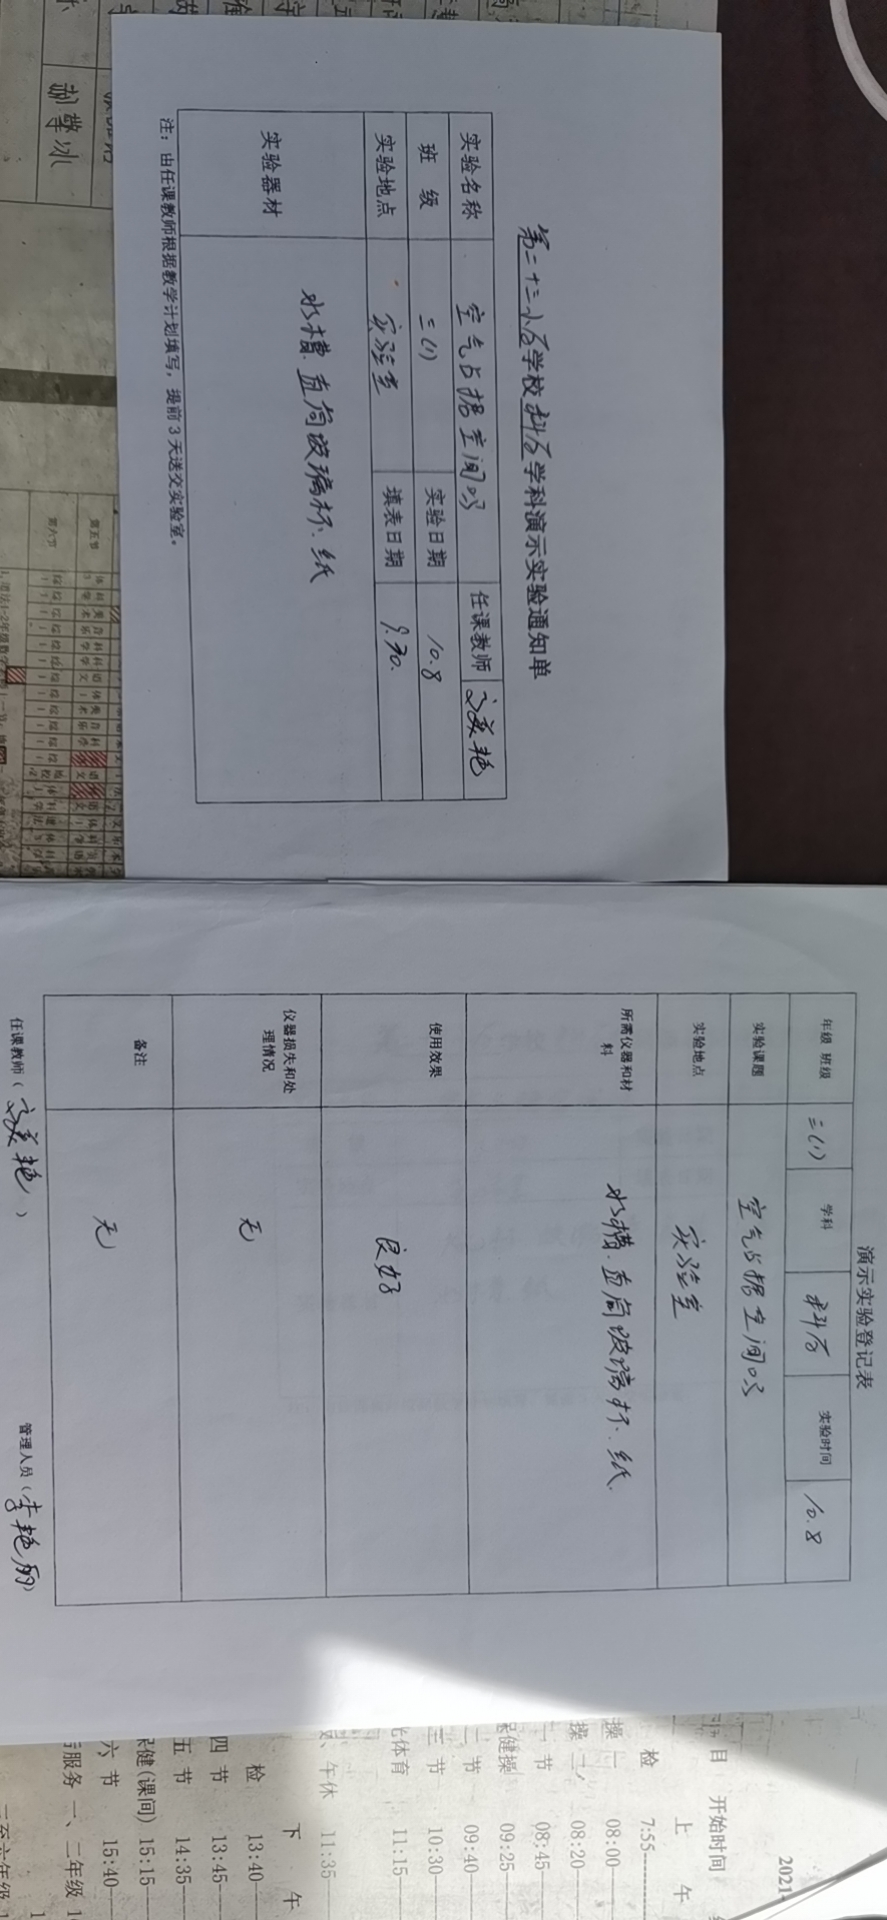 第二十二小学学校科学学科演示实验通知单
实验名称 空气占据空间吗 任课教师
班 级 三(1) 实验日期 10.8
实验地点 实验室 填表日期 9.30.
实验器材 水槽、直筒玻璃杯、纸
注：由任课教师根据教学计划填写，提前 3 天送交实验室。
演示实验登记表
年级 班级 三(1) 学科 科学 实验时间 10.8
实验课题 空气占据空间吗
实验地点 实验室
所需仪器和材
料
水槽、直筒玻璃杯、纸、
使用效果 良好
仪器损失和处
理情况
无
备注 无
任课教师（ ） 管理人员（李艳丽）
第五节
第六节
2021
目 开始时间
上 午
检 7:55
操一 08:00
操二 08:20
一 节 08:45
保健操 09:25
二 节 09:40
三 节 10:30
光体育 11:15
、午休 11:35
下 午
检 13:40
四 节 13:45
五 节 14:35
保健(课间) 15:15
六 节 15:40
后服务 一、二年级